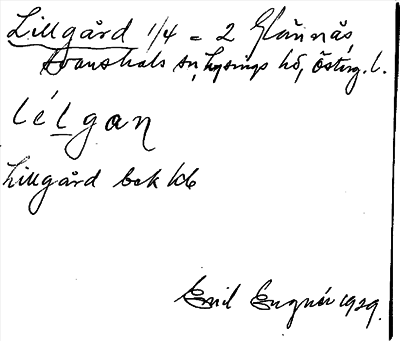 Lillgård 1/4 = 2 Glännäs,
Svanshals sn, Lysings hd, Österg. l.
lé l gan
Lillgård bek kb
Emil Engnér 1929.